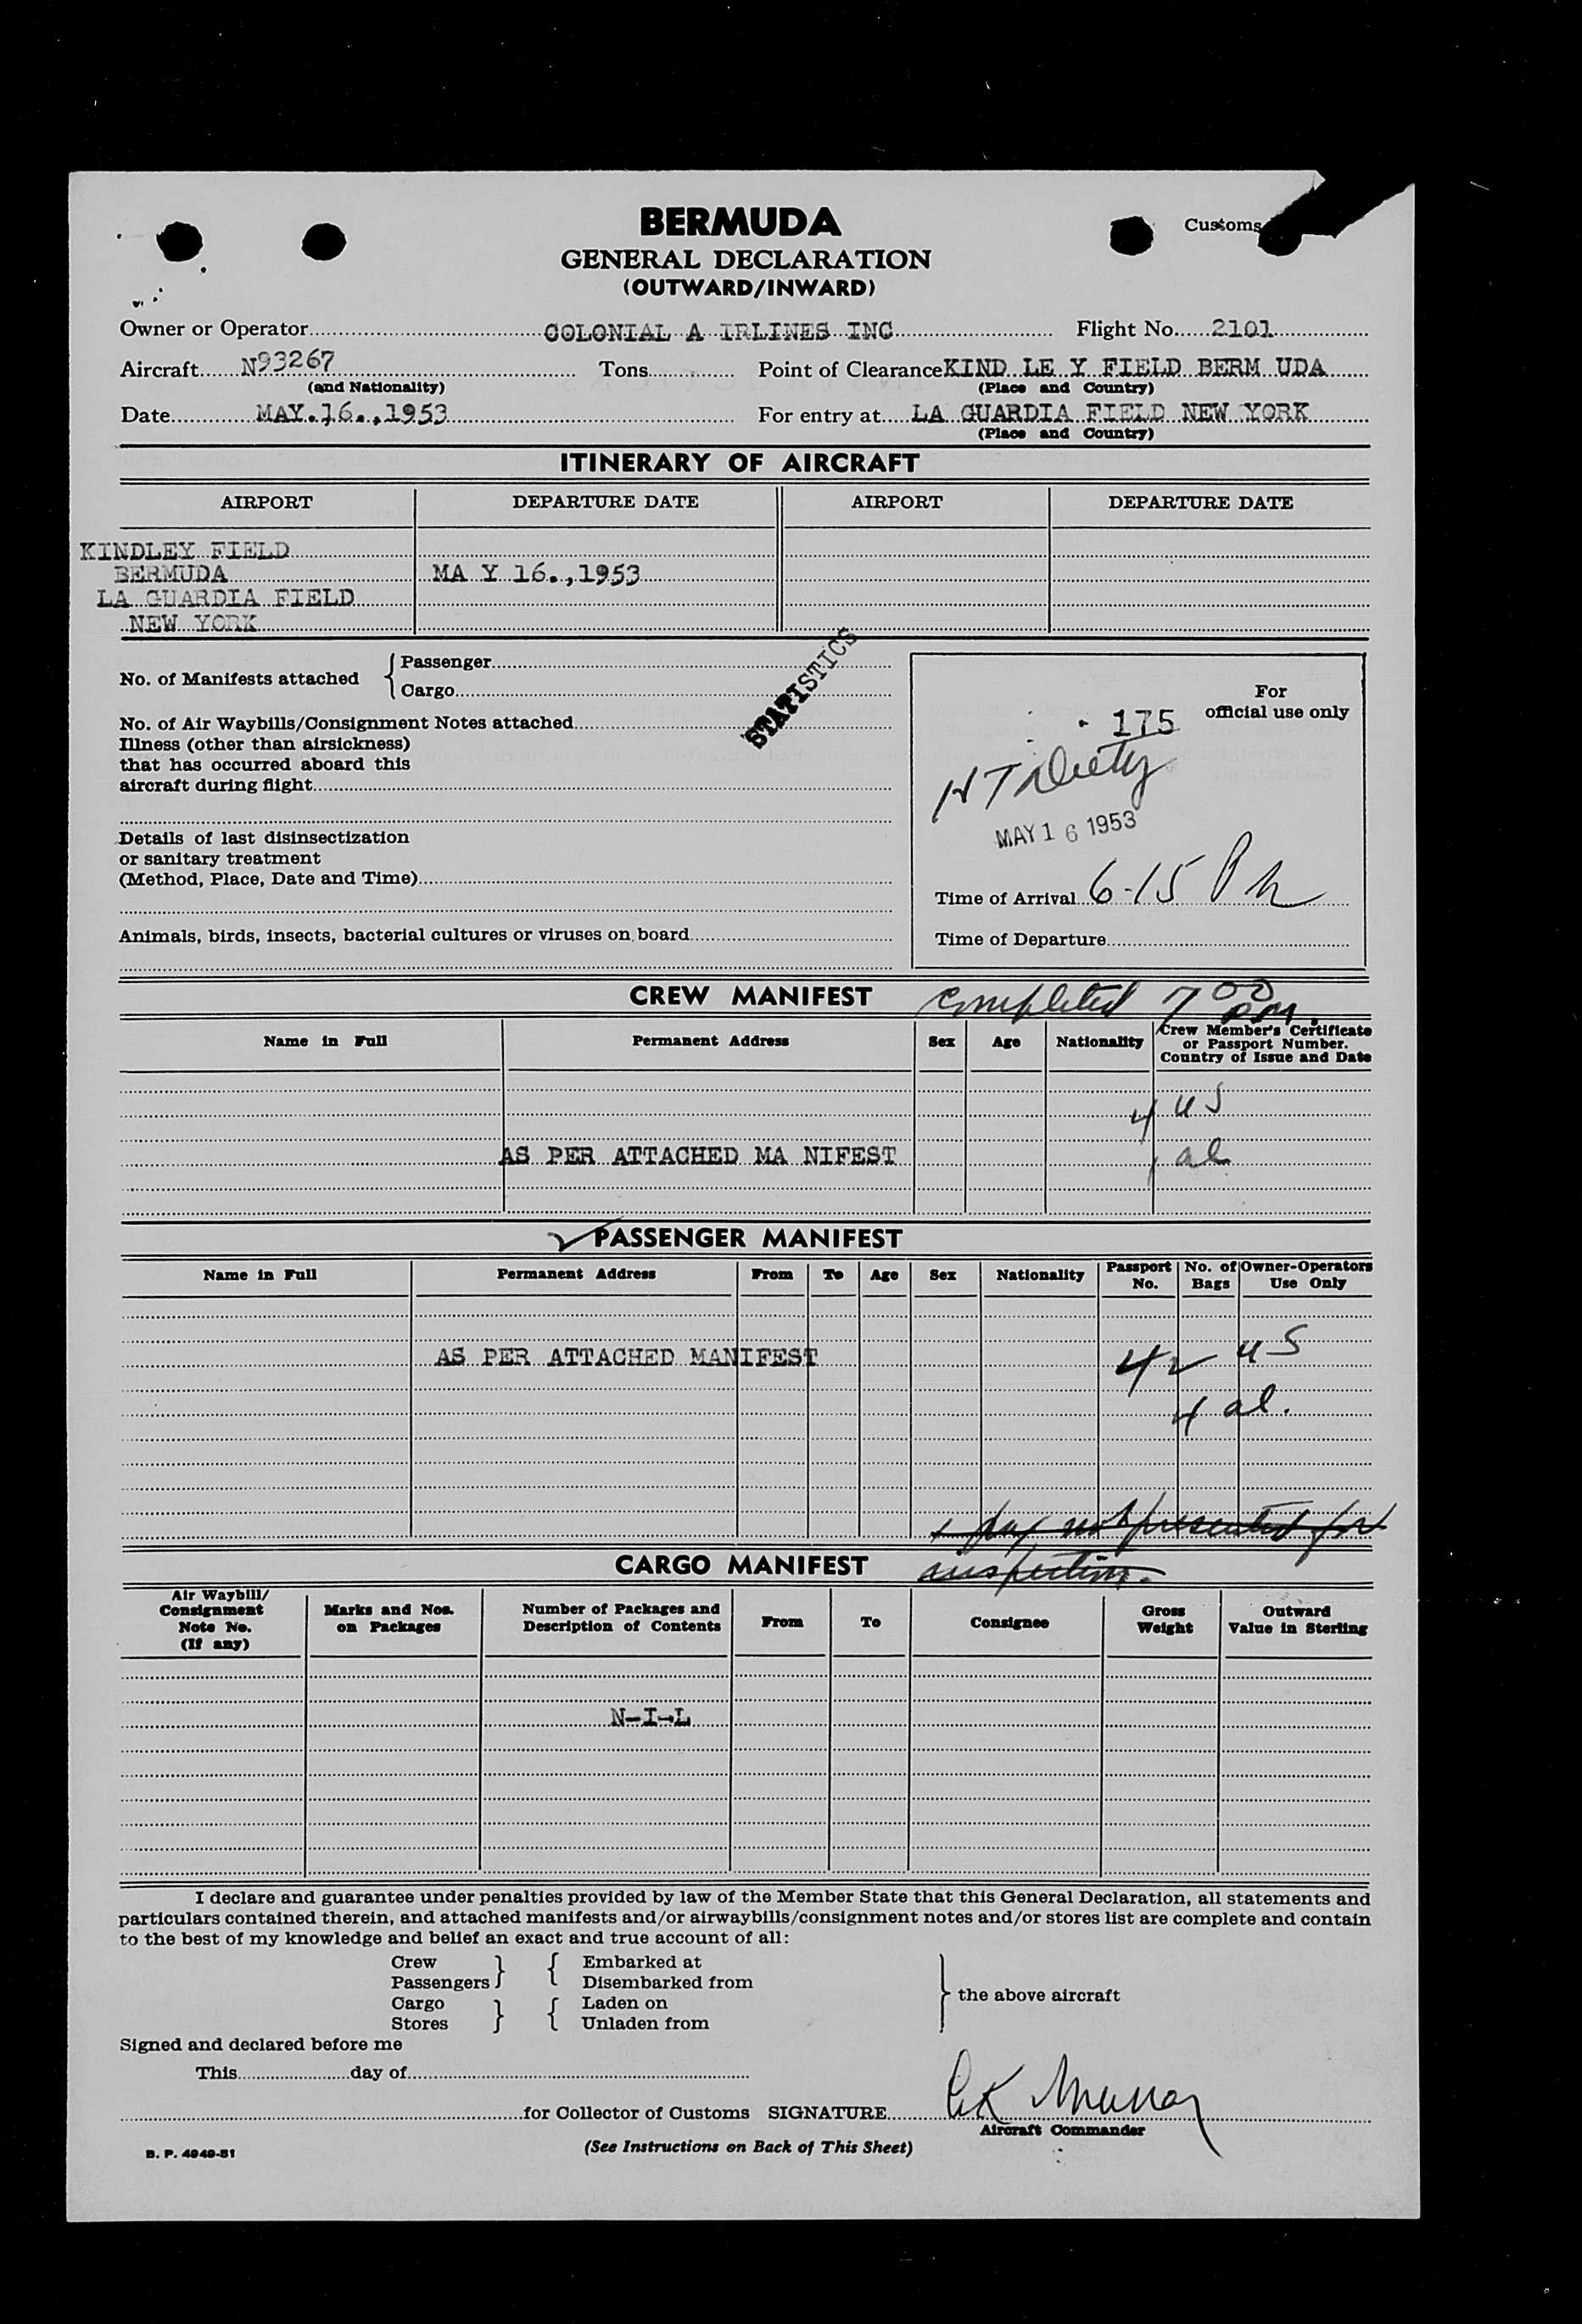 BERMUDA
Customs
GENERAL DECLARATION
(OUTWARD/INWARD)
Owner or Operator COLONIAL A IRLINES INC Flight No. 2101
Aircraft N93267 Tons Point of Clearance KIND LE Y FIELD BERM UDA
(and Nationality) (Place and Country)
Date MAY.16.,1953 For entry at LA GUARDIA FIELD NEW YORK
(Place and Country)
ITINERARY OF AIRCRAFT
AIRPORT DEPARTURE DATE AIRPORT DEPARTURE DATE
KINDLEY FIELD
BERMUDA MA Y 16.,1953
LA GUARDIA FIELD
NEW YORK
STATISTICS
No. of Manifests attached { Passenger
Cargo
No. of Air Waybills/Consignment Notes attached
Illness (other than airsickness)
that has occurred aboard this
aircraft during flight
Details of last disinsectization
or sanitary treatment
(Method, Place, Date and Time)
Animals, birds, insects, bacterial cultures or viruses on board
For
official use only
175
MAY 16 1953
Time of Arrival 6-15 Pm
Time of Departure
CREW MANIFEST completed 7 00 PM.
Name in Full Permanent Address Sex Age Nationality Crew Member's Certificate
or Passport Number.
Country of Issue and Date
4 US
AS PER ATTACHED MA NIFEST 1 al
PASSENGER MANIFEST
Name in Full Permanent Address From To Age Sex Nationality Passport No. No. of Bags Owner-Operators Use Only
AS PER ATTACHED MANIFEST 42 US
4 al.
1 pax not presented for
inspection.
CARGO MANIFEST
Air Waybill/ Consignment Note No. (If any) Marks and Nos. on Packages Number of Packages and Description of Contents From To Consignee Gross Weight Outward Value in Sterling
N-I-L
I declare and guarantee under penalties provided by law of the Member State that this General Declaration, all statements and
particulars contained therein, and attached manifests and/or airwaybills/consignment notes and/or stores list are complete and contain
to the best of my knowledge and belief an exact and true account of all:
Crew } { Embarked at
Passengers Disembarked from
Cargo } { Laden on } the above aircraft
Stores Unladen from
Signed and declared before me
This day of
for Collector of Customs SIGNATURE CK Murray
Aircraft Commander
B. P. 4949-51 (See Instructions on Back of This Sheet)